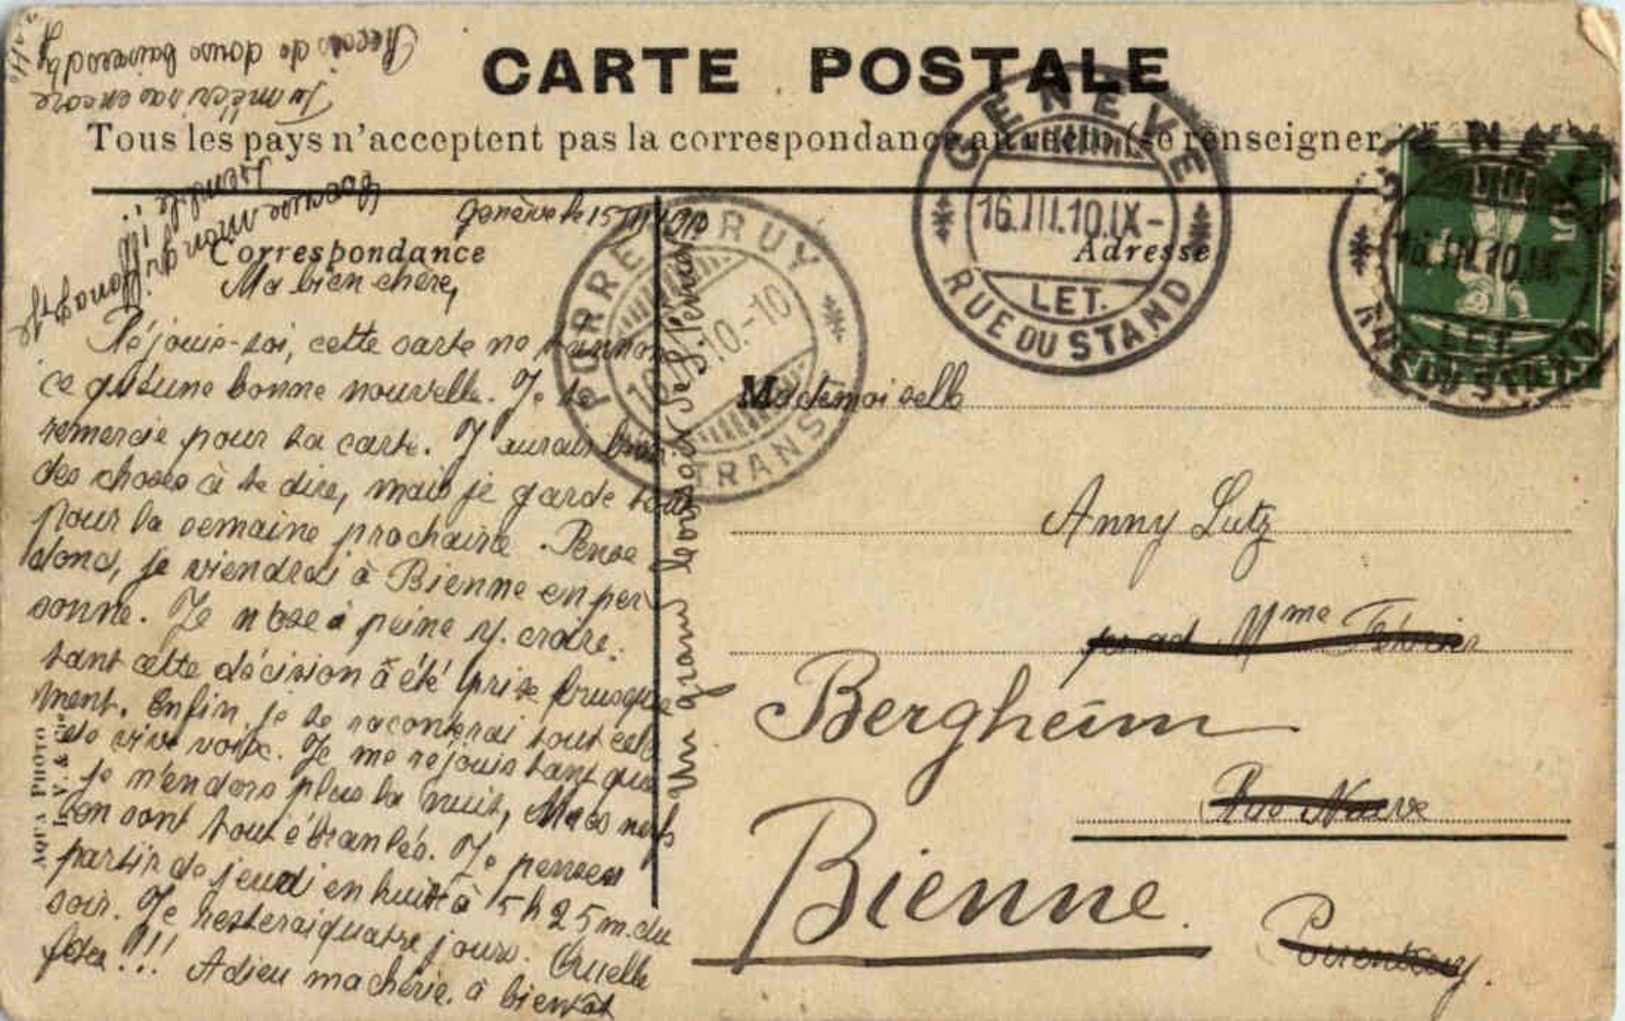 CARTE POSTALE
Tous les pays n'acceptent pas la correspondance au recto (se renseigner
Correspondance
Adresse
Genève le 15 III 1910
Ma bien chère,
Réjouis-toi, cette carte ne t'annon
ce qu'une bonne nouvelle. Je te
remercie pour ta carte. J'aurais bien
des choses à te dire, mais je garde tout
pour la semaine prochaine. Pense
donc, je viendrai à Bienne en per
sonne. Je n'ose à peine y croire.
tant cette décision à été prise brusque
ment. Enfin, je te raconterai tout cela
de vive voix. Je me réjouis tant que
je n'endors plus la nuit, Mes nerfs
en sont tout ébranlés. Je pense
partir de jeudi en huit à 5 h 25 m. du
soir. Je resterai quatre jours. Quelle
fête!!! Adieu ma chérie, à bientôt
Un grand
Reçois de doux baisers d
Tu m'écriras encore
Excuse mon
Mademoiselle
Anny Lutz
Mme
Bergheim
Rue Neuve
Bienne.
Porrentruy.
GENEVE
16.III.10.IX-
LET.
RUE DU STAND
GENEVE
16.III.10.IX-
LET.
RUE DU STAND
PORRENTRUY
10.-10
TRANSIT
5
AQUA PHOTO
L. V. & Cie